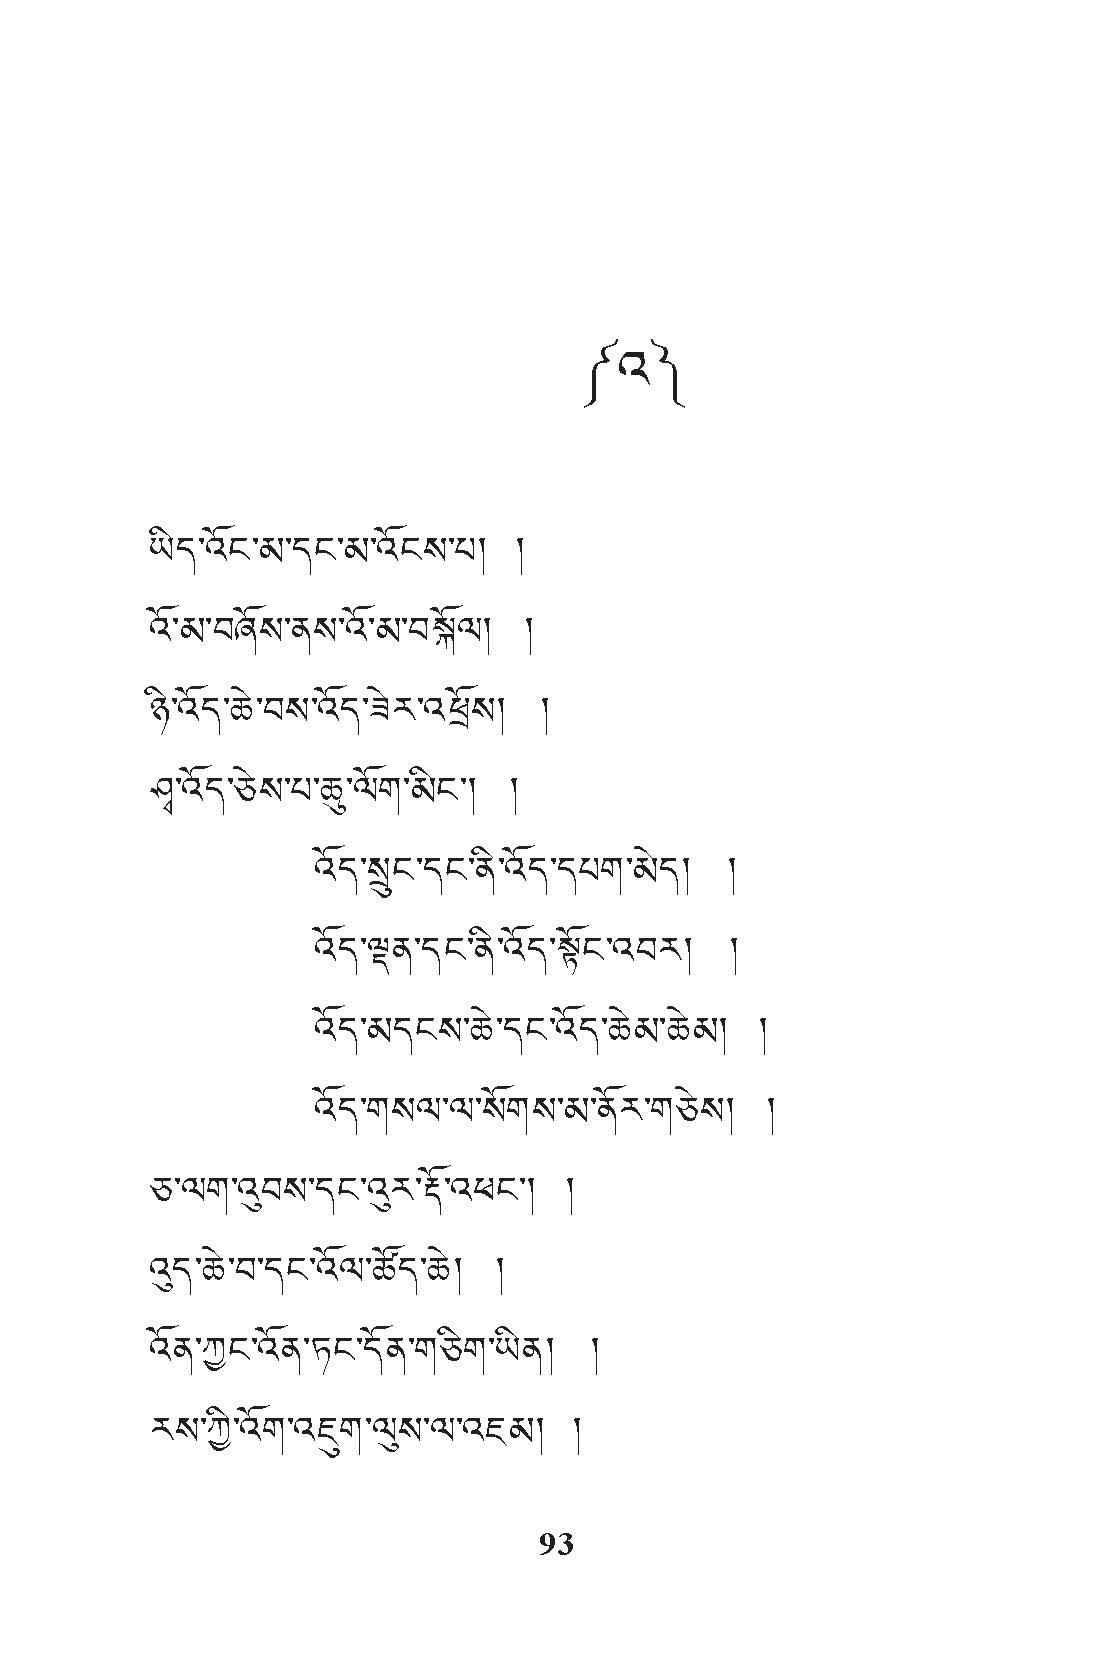 ༼འ༽
ཡིད་འོང་མ་དང་མ་འོངས་པ། །
འོ་མ་བཞོས་ནས་འོ་མ་བསྐོལ། །
ཉི་འོད་ཆེ་བས་འོད་ཟེར་འཕྲོས། །
ཤྭ་འོད་ཅེས་པ་ཆུ་ལོག་མིང་། །
འོད་སྲུང་དང་ནི་འོད་དཔག་མེད། །
འོད་ལྡན་དང་ནི་འོད་སྟོང་འབར། །
འོད་མདངས་ཆེ་དང་འོད་ཆེམ་ཆེམ། །
འོད་གསལ་ལ་སོགས་མ་ནོར་གཅེས། །
ཅ་ལག་འུབས་དང་འུར་རྡོ་འཕང་། །
འུད་ཆེ་བ་དང་འོལ་ཚོད་ཆེ། །
འོན་ཀྱང་འོན་ཏང་དོན་གཅིག་ཡིན། །
རས་ཀྱི་འོག་འཇུག་ལུས་ལ་འཇམ། །
93